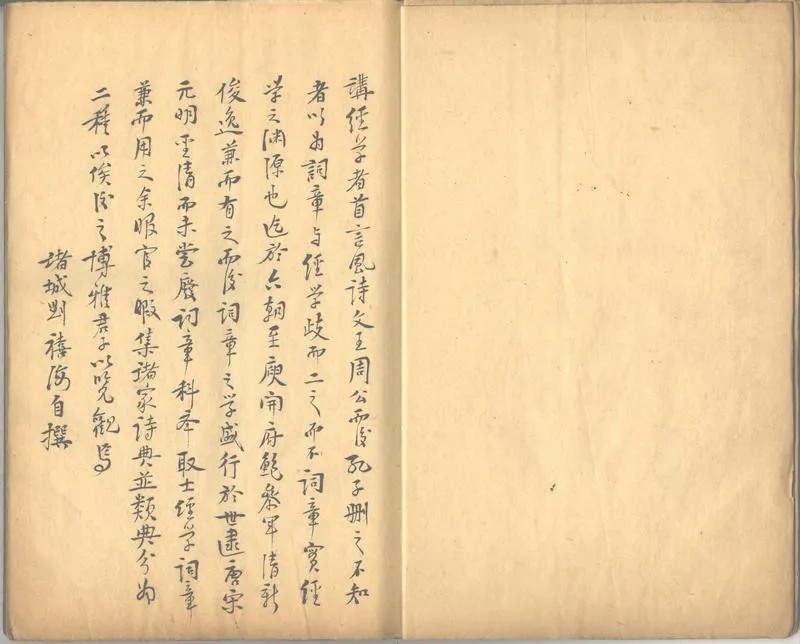 講經学者首言風詩文王周公而後孔子删之不知
者以为詞章与經学歧而二之而不詞章實經
学之渊源也迄於六朝至庾開府鮑叅军清新
俊逸兼而有之而後詞章之学盛行於世逮唐宋
元明至清而未尝廢詞章科至取士經学詞章
兼而用之余暇官之暇集諸家詩典並類典分为
二種以俟後之博雅君子以览觀焉
诸城刘禧海自撰